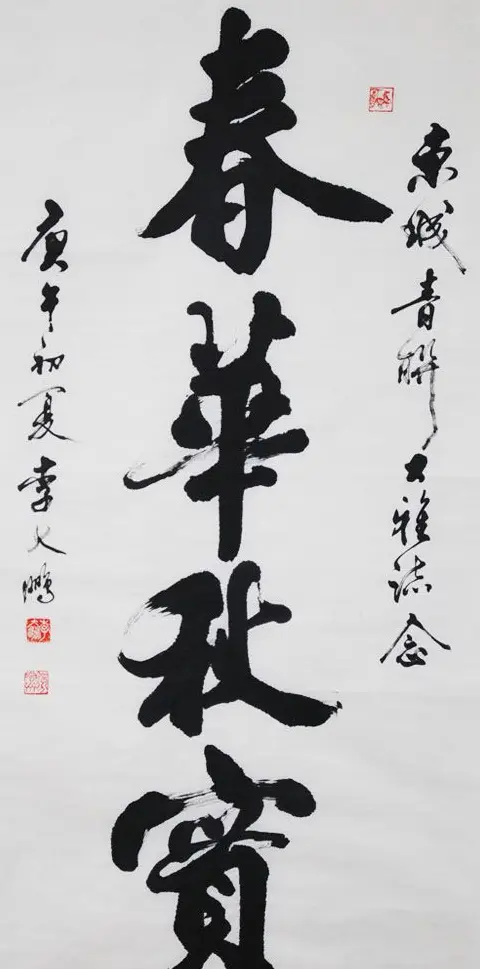 東城青聯大雅誌念
春華秋實
庚午初夏李大鵬